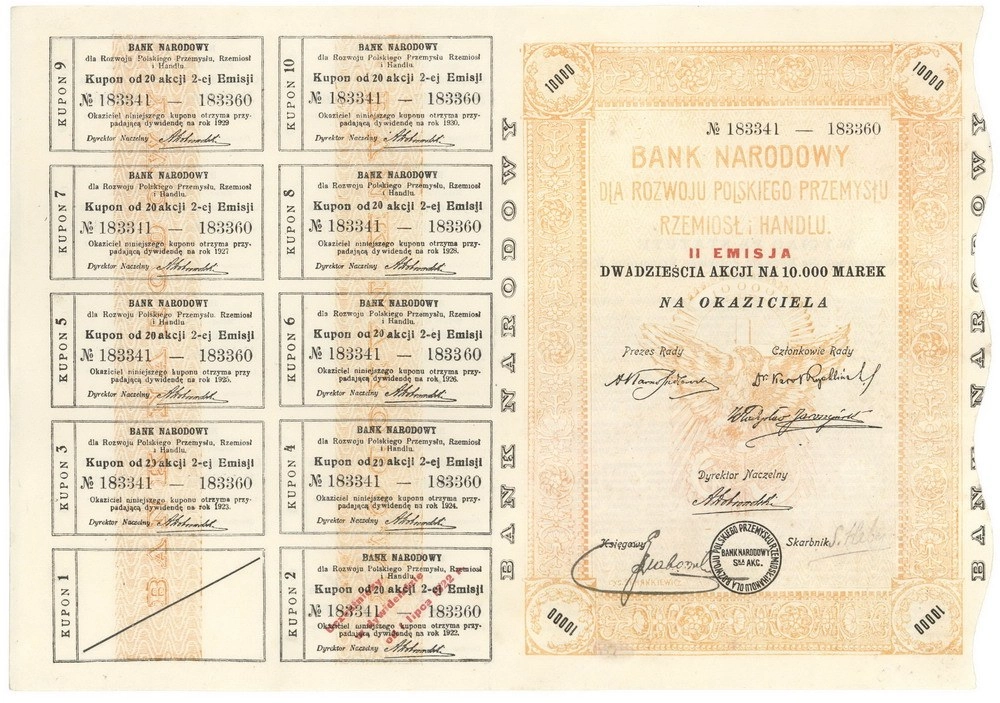 KUPON 9
BANK NARODOWY
dla Rozwoju Polskiego Przemysłu, Rzemiosł
i Handlu.
Kupon od 20 akcji 2-ej Emisji
№ 183341 — 183360
Okaziciel niniejszego kuponu otrzyma przy-
padającą dywidendę na rok 1929
Dyrektor Naczelny
KUPON 10
BANK NARODOWY
dla Rozwoju Polskiego Przemysłu, Rzemiosł
i Handlu.
Kupon od 20 akcji 2-ej Emisji
№ 183341 — 183360
Okaziciel niniejszego kuponu otrzyma przy-
padającą dywidendę na rok 1930.
Dyrektor Naczelny
KUPON 7
BANK NARODOWY
dla Rozwoju Polskiego Przemysłu, Rzemiosł
i Handlu.
Kupon od 20 akcji 2-ej Emisji
№ 183341 — 183360
Okaziciel niniejszego kuponu otrzyma przy-
padającą dywidendę na rok 1927
Dyrektor Naczelny
KUPON 8
BANK NARODOWY
dla Rozwoju Polskiego Przemysłu, Rzemiosł
i Handlu.
Kupon od 20 akcji 2-ej Emisji
№ 183341 — 183360
Okaziciel niniejszego kuponu otrzyma przy-
padającą dywidendę na rok 1928.
Dyrektor Naczelny
KUPON 5
BANK NARODOWY
dla Rozwoju Polskiego Przemysłu, Rzemiosł
i Handlu.
Kupon od 20 akcji 2-ej Emisji
№ 183341 — 183360
Okaziciel niniejszego kuponu otrzyma przy-
padającą dywidendę na rok 1925.
Dyrektor Naczelny
KUPON 6
BANK NARODOWY
dla Rozwoju Polskiego Przemysłu, Rzemiosł
i Handlu.
Kupon od 20 akcji 2-ej Emisji
№ 183341 — 183360
Okaziciel niniejszego kuponu otrzyma przy-
padającą dywidendę na rok 1926.
Dyrektor Naczelny
KUPON 3
BANK NARODOWY
dla Rozwoju Polskiego Przemysłu, Rzemiosł
i Handlu.
Kupon od 20 akcji 2-ej Emisji
№ 183341 — 183360
Okaziciel niniejszego kuponu otrzyma przy-
padającą dywidendę na rok 1923.
Dyrektor Naczelny
KUPON 4
BANK NARODOWY
dla Rozwoju Polskiego Przemysłu, Rzemiosł
i Handlu.
Kupon od 20 akcji 2-ej Emisji
№ 183341 — 183360
Okaziciel niniejszego kuponu otrzyma przy-
padającą dywidendę na rok 1924.
Dyrektor Naczelny
KUPON 1
KUPON 2
BANK NARODOWY
dla Rozwoju Polskiego Przemysłu, Rzemiosł
i Handlu.
Kupon od 20 akcji 2-ej Emisji
№ 183341 — 183360
Okaziciel niniejszego kuponu otrzyma przy-
padającą dywidendę na rok 1922.
Dyrektor Naczelny
w dywidendzie
od 1 lipca 1922 r.
BANK NARODOWY
10000
10000
№ 183341 — 183360
BANK NARODOWY
DLA ROZWOJU POLSKIEGO PRZEMYSŁU
RZEMIOSŁ i HANDLU.
II EMISJA
DWADZIEŚCIA AKCJI NA 10.000 MAREK
NA OKAZICIELA
Prezes Rady
Członkowie Rady
Dyrektor Naczelny
Księgowy
Skarbnik
BANK NARODOWY
Ska AKC.
DLA ROZWOJU POLSKIEGO PRZEMYSŁU RZEMIOSŁ I HANDLU
10000
10000
BANK NARODOWY